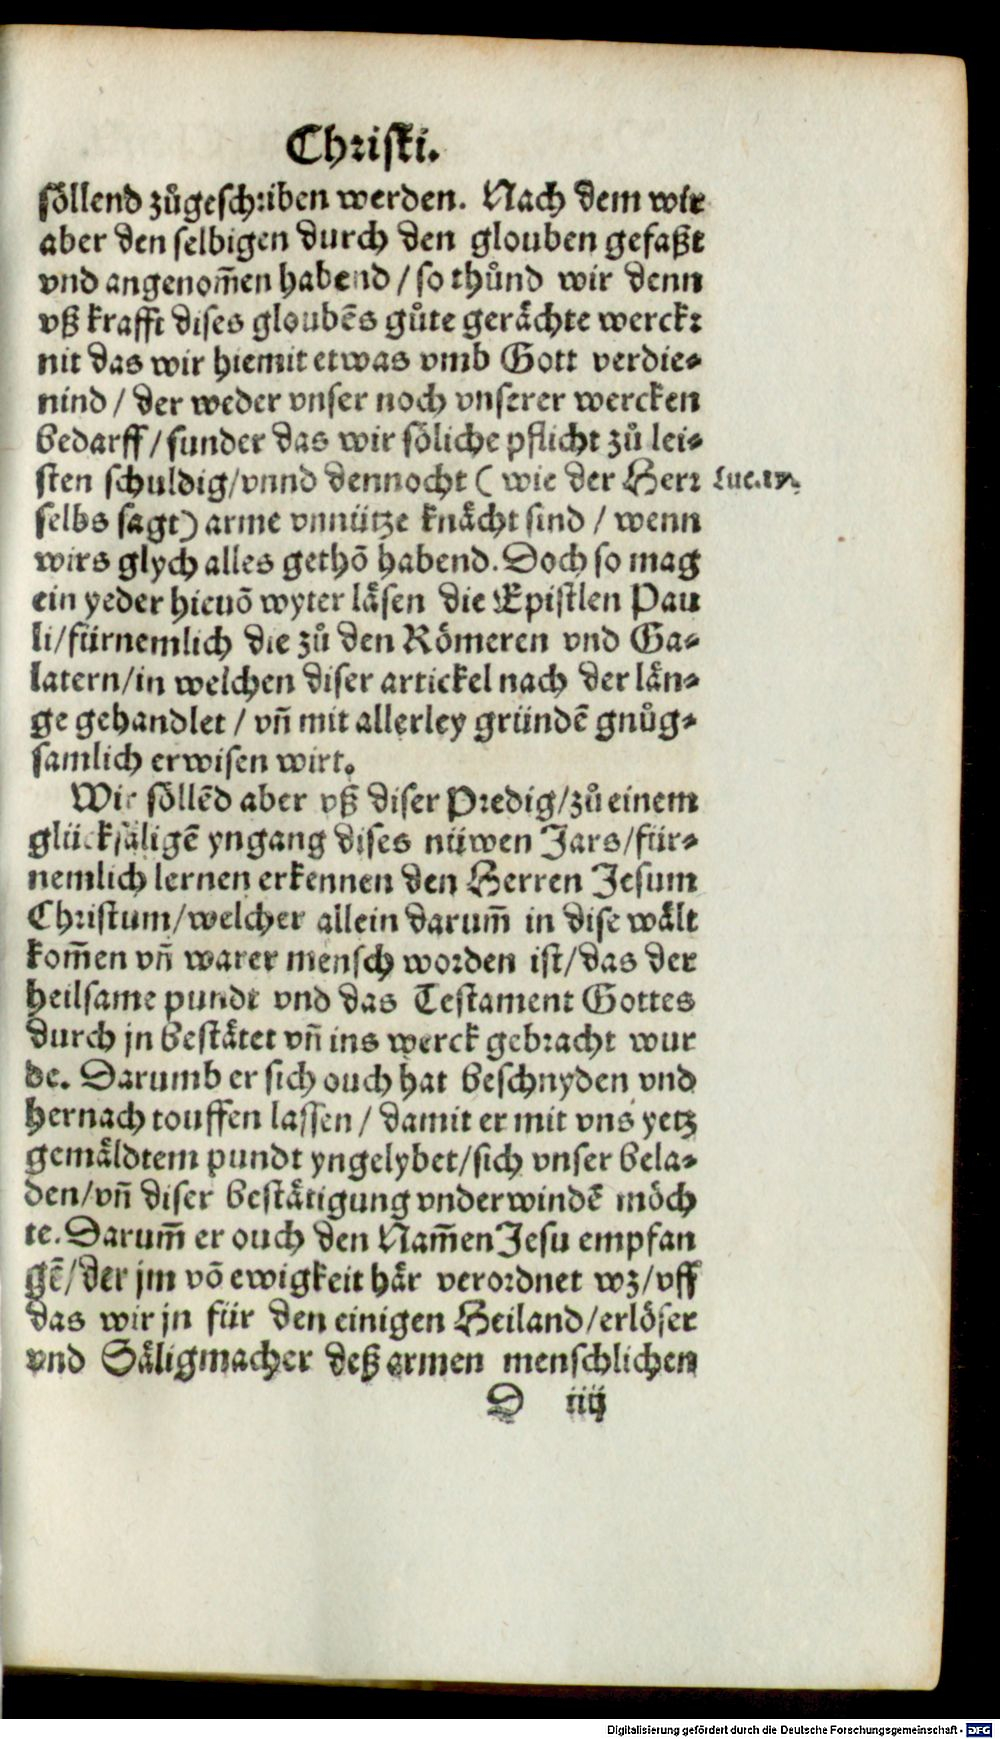 Christi.
söllend zůgeschriben werden. Nach dem wir
aber den selbigen durch den glouben gefaßt
vnd angenom̃en habend / so thůnd wir denn
vß krafft dises gloubẽs gůte gerächte werck:
nit das wir hiemit etwas vmb Gott verdie⸗
nind / der weder vnser noch vnserer wercken
bedarff / sunder das wir söliche pflicht zů lei⸗
sten schuldig / vnnd dennocht ( wie der Herr
Luc.17.
selbs sagt) arme vnnütze knächt sind / wenn
wirs glych alles gethõ habend. Doch so mag
ein yeder hieuõ wyter läsen die Epistlen Pau
li / fürnemlich die zů den Römeren vnd Ga⸗
latern / in welchen diser artickel nach der län⸗
ge gehandlet / vñ mit allerley gründẽ gnůg⸗
samlich erwisen wirt.
Wir söllẽd aber vß diser Predig / zů einem
glücksäligẽ yngang dises nüwen Jars / für⸗
nemlich lernen erkennen den Herren Jesum
Christum / welcher allein darum̃ in dise wält
kom̃en vñ warer mensch worden ist / das der
heilsame pundt vnd das Testament Gottes
durch jn bestätet vñ ins werck gebracht wur
de. Darumb er sich ouch hat beschnyden vnd
hernach touffen lassen / damit er mit vns yetz
gemäldtem pundt yngelybet / sich vnser bela⸗
den / vñ diser bestätigung vnderwindẽ möch
te. Darum̃ er ouch den Nam̃en Jesu empfan
gẽ / der jm võ ewigkeit här verordnet wz / vff
das wir jn für den einigen Heiland / erlöser
vnd Säligmacher deß armen menschlichen
D iiij
Digitalisierung gefördert durch die Deutsche Forschungsgemeinschaft - DFG